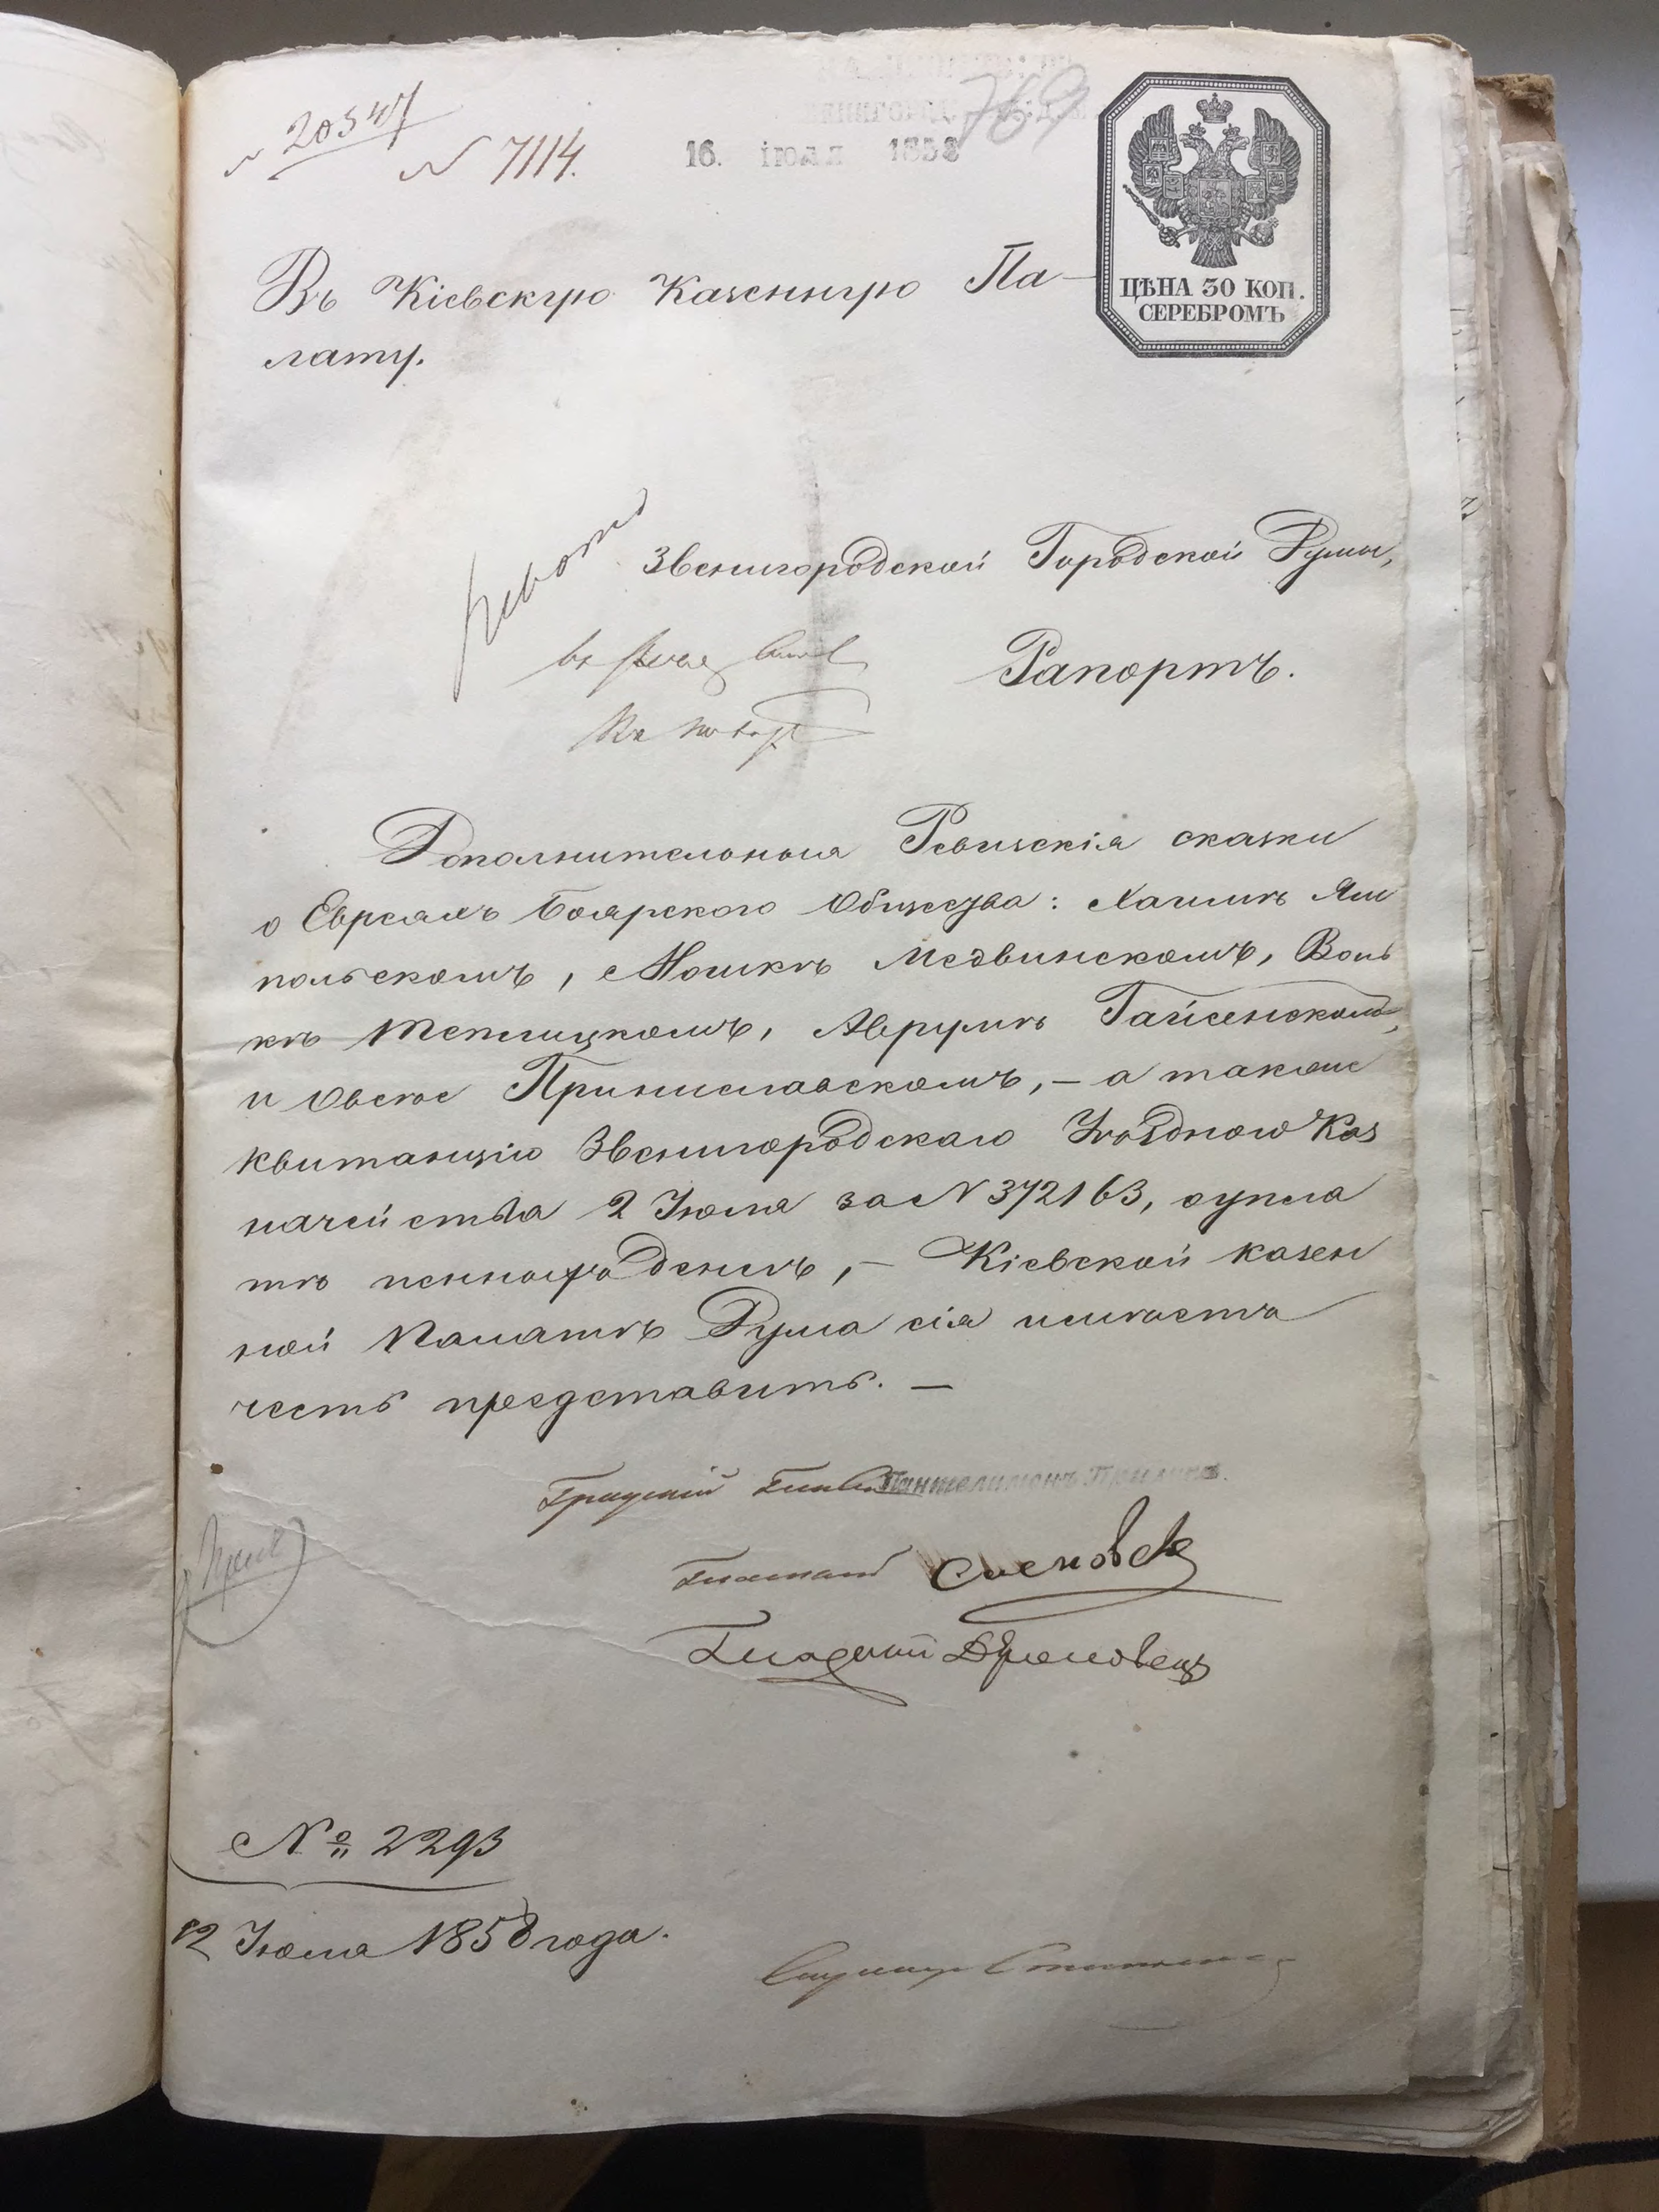 № 20547
№ 7114.
769
16. іюля 1858
ЦѢНА 30 КОП.
СЕРЕБРОМЪ
Въ Кіевскую Казенную Па-
лату.
Звенигородской Городской Думы,
Рапортъ.
Дополнительныя Ревизскія сказки
о Евреяхъ Боярского Общества: Хаимѣ Ям
польскомъ, Мошкѣ Медвинскомъ, Воль
кѣ Теплицкомъ, Аврумѣ Гайсенскомъ,
и Овсѣе Принцславскомъ, – а также
квитанцію Звенигородскаго Уѣзднаго Каз
начейства 2 Іюля за № 372163, о упла
тѣ пенныхъ денегъ, – Кіевской казен
ной Палатѣ Дума сія имѣетъ
честь представить. –
Градской Глава Пантелимонъ
Гласный
Гласный
№ 2293
12 Іюля 1858 года.